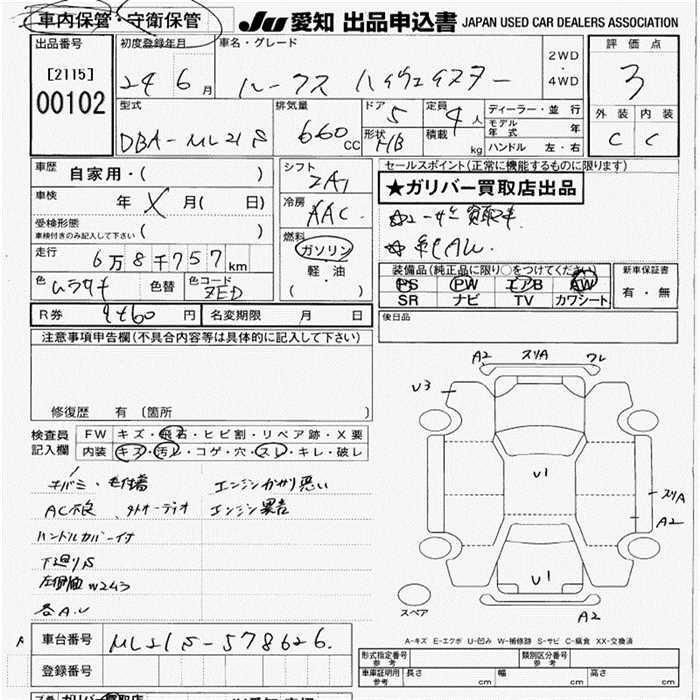 車内保管・守衛保管 JU 愛知 出品申込書 JAPAN USED CAR DEALERS ASSOCIATION
出品番号 初度登録年月 車名・グレード 2WD・4WD 評価点
[2115] 00102 24 6月 ルークス ハイウェイスター 3
型式 排気量 ドア 定員 ディーラー・並行 外装 内装
DBA-ML21S 660cc 5 4人 モデル年式 年 C C
形状 HB 積載 kg ハンドル 左・右
車歴 自家用・( ) シフト セールスポイント(正常に機能するものに限ります)
車検 年 X 月( 日) 冷房 AAC ★ガリバー買取店出品
受検形態 車検付きのみ記入して下さい ( )
走行 6万8千757km 燃料 ガソリン・軽油・( )
色 色替 色コード ZED 装備品(純正品に限り○をつけてください) 新車保証書
PS PW エアB AW 有・無
SR ナビ TV カワシート
R券 円 名変期限 月 日 後日品
注意事項申告欄(不具合内容等は具体的に記入して下さい)
修復歴 有 〔箇所 〕
検査員記入欄 FW キズ・飛石・ヒビ割・リペア跡・X要
内装 キズ・汚レ・コゲ・穴・スレ・キレ・破レ
エンジンかかり悪い
AC不良 エンジン異音
ハンドルカバー付
下廻りS
各A.U
A2 スリA ワレ
U3
U1
スリA
A2
U1
スペア A2
A-キズ E-エクボ U-凹み W-補修跡 S-サビ C-腐食 XX-交換済
車台番号 ML21S-578626
登録番号
形式指定番号 参考 類別区分番号 参考
車庫証明用 参考 長さ cm 幅 cm 高さ cm
ガリバー買取店